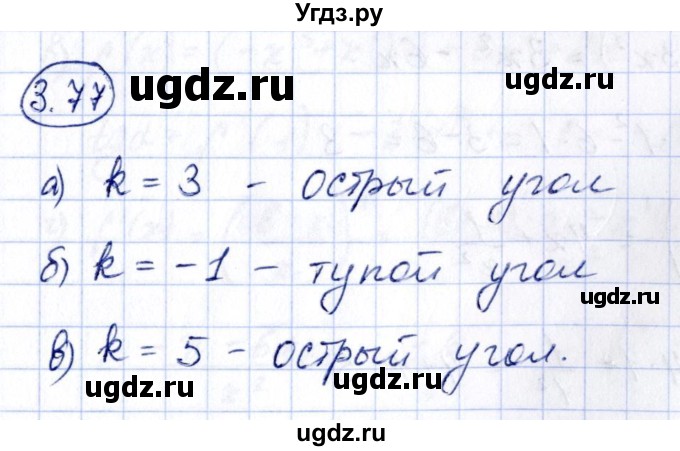 Угдз.ру
3.77 ugdz.ru ugdz.ru
а) k = 3 - острый угол
б) k = -1 - тупой угол
ugdz.ru
в) k = 5 - острый угол.
ugdz.ru ugdz.ru
ugdz.ru